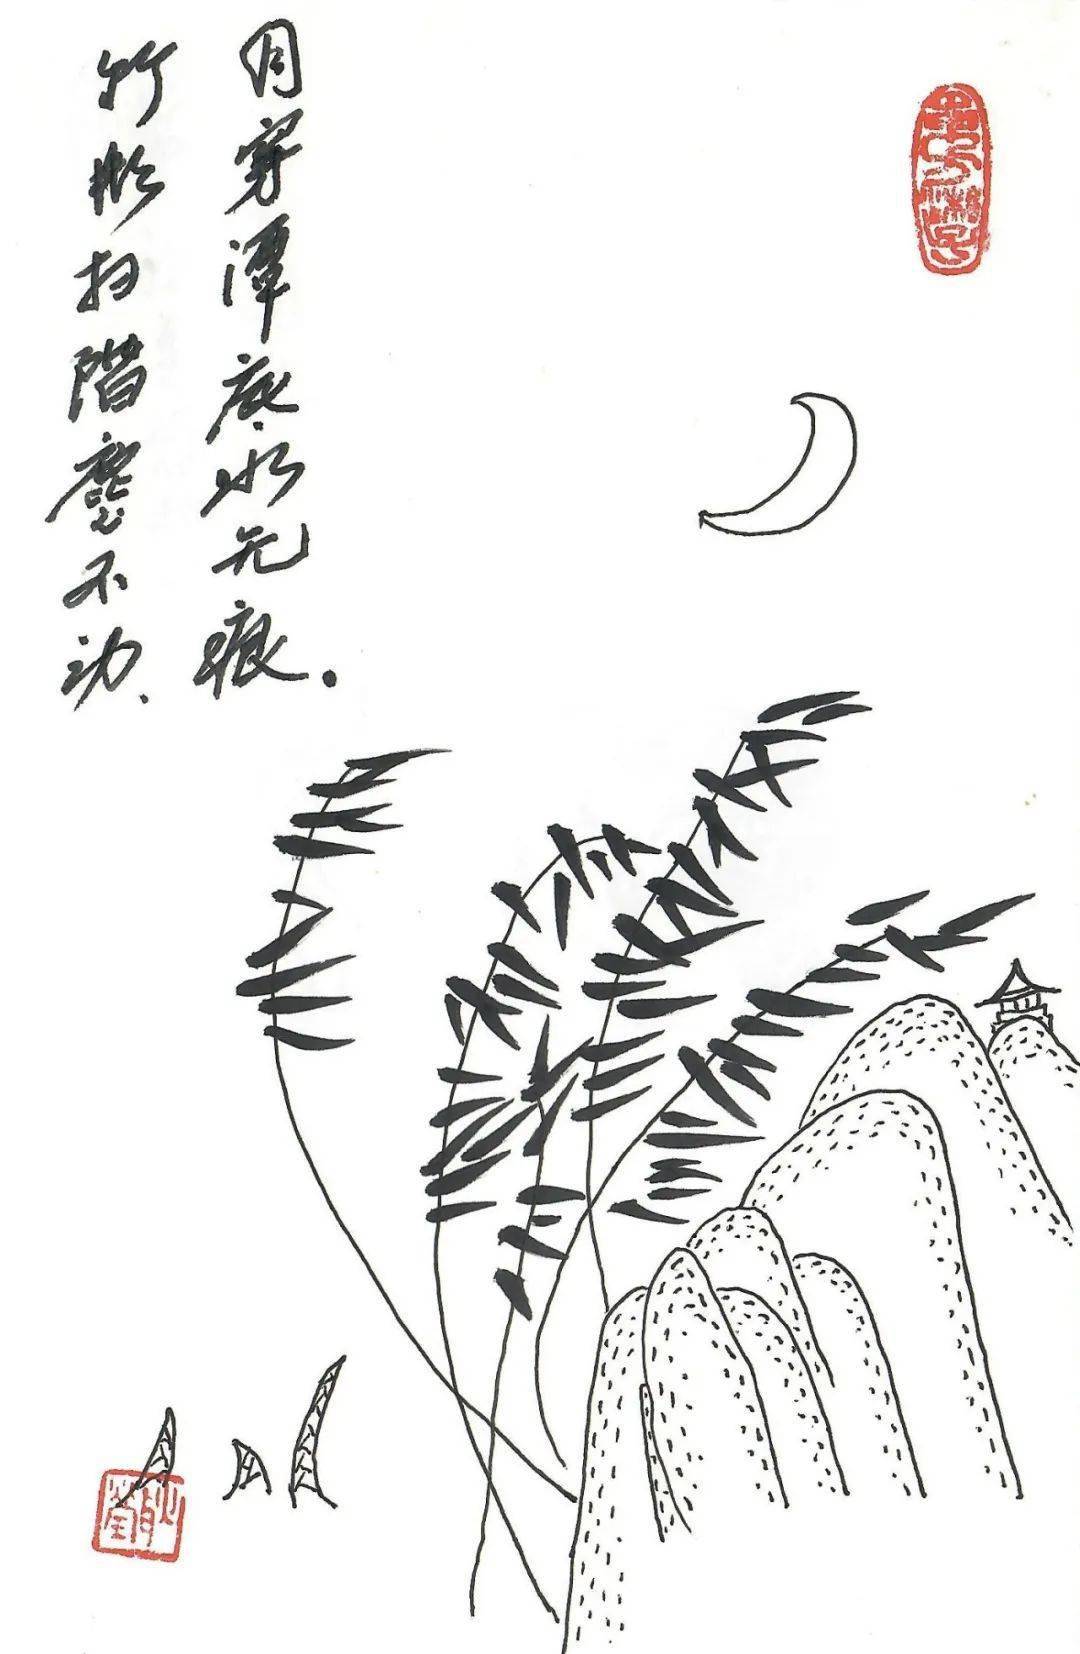 竹影扫階塵不动、
月穿潭底水无痕。